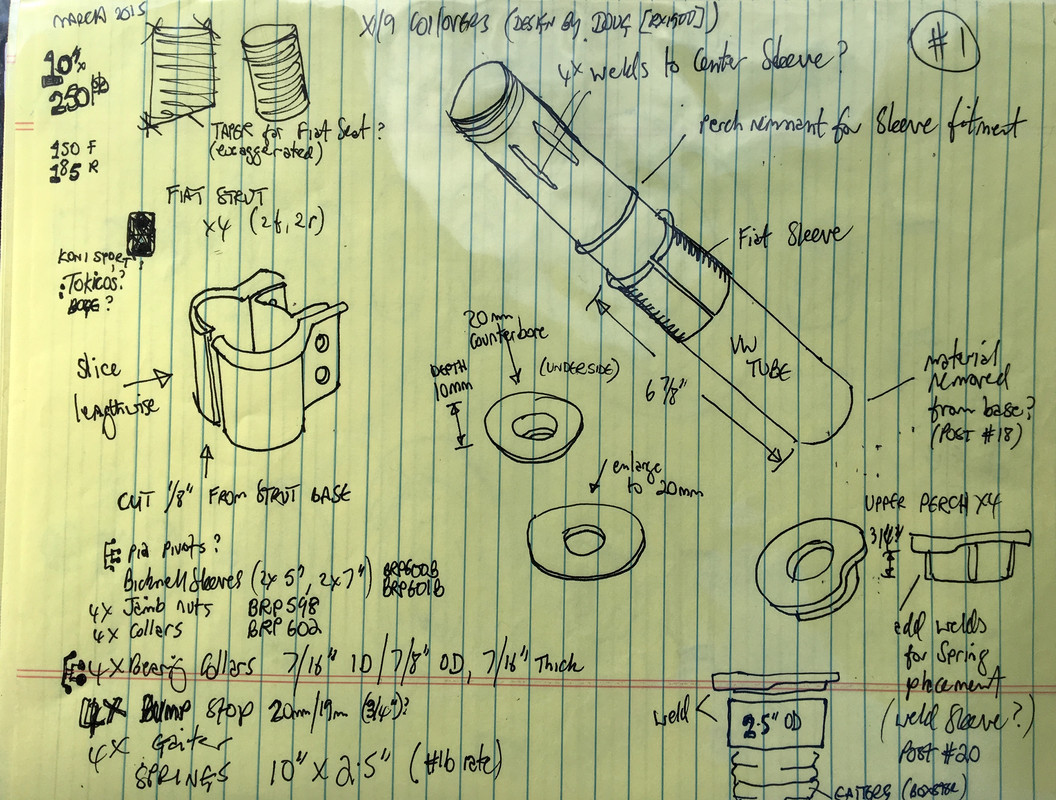 MARCH 2015
X/9 COILOVERS (DESIGN BY DOUG [RX1900])
#1
10"x
250lb
150 F
185 R
TAPER for Fiat Seat?
(exaggerated)
4x welds to Center Sleeve?
Perch remnant for Sleeve fitment
FIAT STRUT
x4 (2f, 2r)
KONI SPORT?
Tokicos?
BOGE?
Fiat Sleeve
slice
lengthwise
20mm
counterbore
DEPTH
10mm
(UNDERSIDE)
6 7/8"
VW
TUBE
material
removed
from base?
(POST #18)
CUT 1/8" FROM STRUT BASE
enlarge
to 20mm
UPPER PERCH X4
3/4"
pia pivots?
Bicknell Sleeves (2x 5", 2x7") BRP600B
BRP601B
4x Jamb nuts BRP598
4x Collars BRP 602
4x Bearing Collars 7/16" ID / 7/8" OD, 7/16" Thick
4X Bump Stop 20mm/19m (3/4")?
4x Gaiter
SPRINGS 10" x 2.5" (#lb rate)
add welds
for Spring
placement
(weld Sleeve?)
POST #20
weld
2.5" OD
GAITERS (BOXSTER)